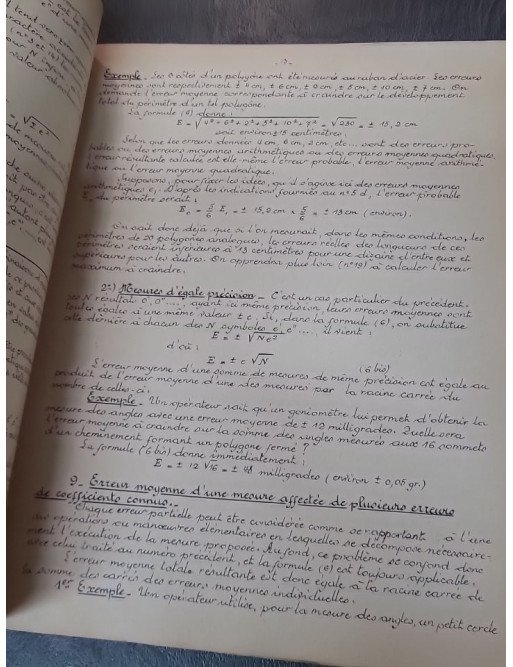 Exemple - Les 6 côtés d'un polygône ont été mesurés au ruban d'acier. Les erreurs
moyennes sont respectivement ± 4 cm, ± 6 cm, ± 2 cm, ± 5 cm, ± 10 cm, ± 7 cm. On
demande l'erreur moyenne correspondante à craindre sur le développement
total du périmètre d'un tel polygône.
La formule (6) donne :
E = √4² + 6² + 2² + 5² + 10² + 7² = √230 = ± 15,2 cm
soit environ ± 15 centimètres.
Selon que les erreurs données 4 cm, 6 cm, 2 cm, etc... sont des erreurs pro-
bables ou des erreurs moyennes arithmétiques ou des erreurs moyennes quadratiques,
l'erreur résultante calculée est elle-même l'erreur probable, l'erreur moyenne arithmé-
tique ou l'erreur moyenne quadratique.
Supposons, pour fixer les idées, qu'il s'agisse ici des erreurs moyennes
arithmétiques e₁. D'après les indications fournies au n° 5 d, l'erreur probable
du périmètre serait :
= ± 15,2 cm × 5/6 = ± 13 cm (environ).
On sait donc déjà que si l'on mesurait, dans les mêmes conditions, les
périmètres de 20 polygônes analogues, les erreurs réelles des longueurs de ces
périmètres seraient inférieures à 13 centimètres pour une dizaine d'entre eux et
supérieures pour les autres. On apprendra plus loin (n° 19) à calculer l'erreur
maximum à craindre.
2°) Mesures d'égale précision - C'est un cas particulier du précédent.
Les N résultats 0, 0'' ...., ayant la même précision, leurs erreurs moyennes sont
toutes égales à une même valeur ± e. Si, dans la formule (6), on substitue
cette dernière à chacun des N symboles e', e'' ...., il vient :
E = ± √Ne²
d'où :
E = ± e √N (6 bis)
L'erreur moyenne d'une somme de mesures de même précision est égale au
produit de l'erreur moyenne d'une des mesures par la racine carrée du
nombre de celles-ci.
Exemple - Un opérateur sait qu'un goniomètre lui permet d'obtenir la
mesure des angles avec une erreur moyenne de ± 12 milligrades. Quelle sera
l'erreur moyenne à craindre sur la somme des angles mesurés aux 16 sommets
d'un cheminement formant un polygône fermé ?
La formule (6 bis) donne immédiatement :
E = ± 12 √16 = ± 48 milligrades (environ ± 0,05 gr.)
9 - Erreur moyenne d'une mesure affectée de plusieurs erreurs
de coefficients connus. -
Chaque erreur partielle peut être considérée comme se rapportant à l'une
des opérations ou manœuvres élémentaires en lesquelles se décompose nécessaire-
ment l'exécution de la mesure proposée. Au fond, ce problème se confond donc
avec celui traité au numéro précédent, et la formule (6) est toujours applicable.
L'erreur moyenne totale résultante est donc égale à la racine carrée de
la somme des carrés des erreurs moyennes individuelles.
1er Exemple - Un opérateur utilise, pour la mesure des angles, un petit cercle